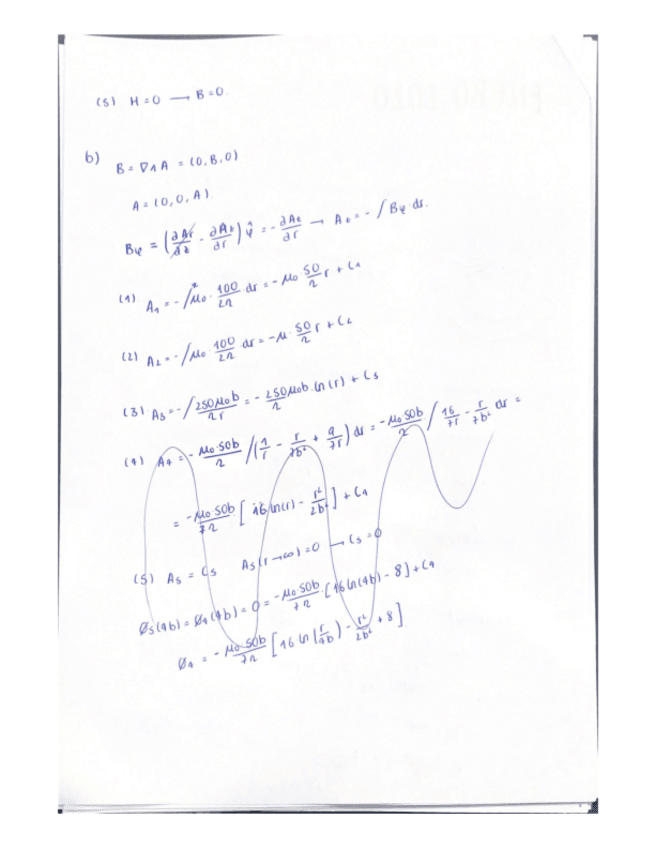 (5) H=0 → B=0.
b) B = ∇∧A = (0, B, 0)
A = (0, 0, A)
Bφ = (∂Ar/∂z - ∂Az/∂r) φ̂ = - ∂Az/∂r → Az = - ∫ Bφ · dr.
(1) A₁ = - ∫ μ₀ · 100/2π · dr = - μ₀ 50/π r + C₁
(2) A₂ = - ∫ μ₀ · 100/2π dr = - μ · 50/π r + C₂
(3) A₃ = - ∫ 250μ₀b/πr = - 250μ₀b/π · ln(r) + C₃
(4) A₄ = - μ₀50b/π ∫ (1/r - r/7b² + 9/7r) dr = - μ₀50b/π ∫ 16/7r - r/7b² dr =
= - μ₀50b/7π [16 ln(r) - r²/2b²] + C₄
(5) A₅ = C₅ A₅(r→∞) = 0 → C₅ = 0
Ø₅(4b) = Ø₄(4b) = 0 = - μ₀50b/7π · [16 ln(4b) - 8] + C₄
Ø₄ = - μ₀50b/7π [16 ln(r/4b) - r²/2b² + 8]